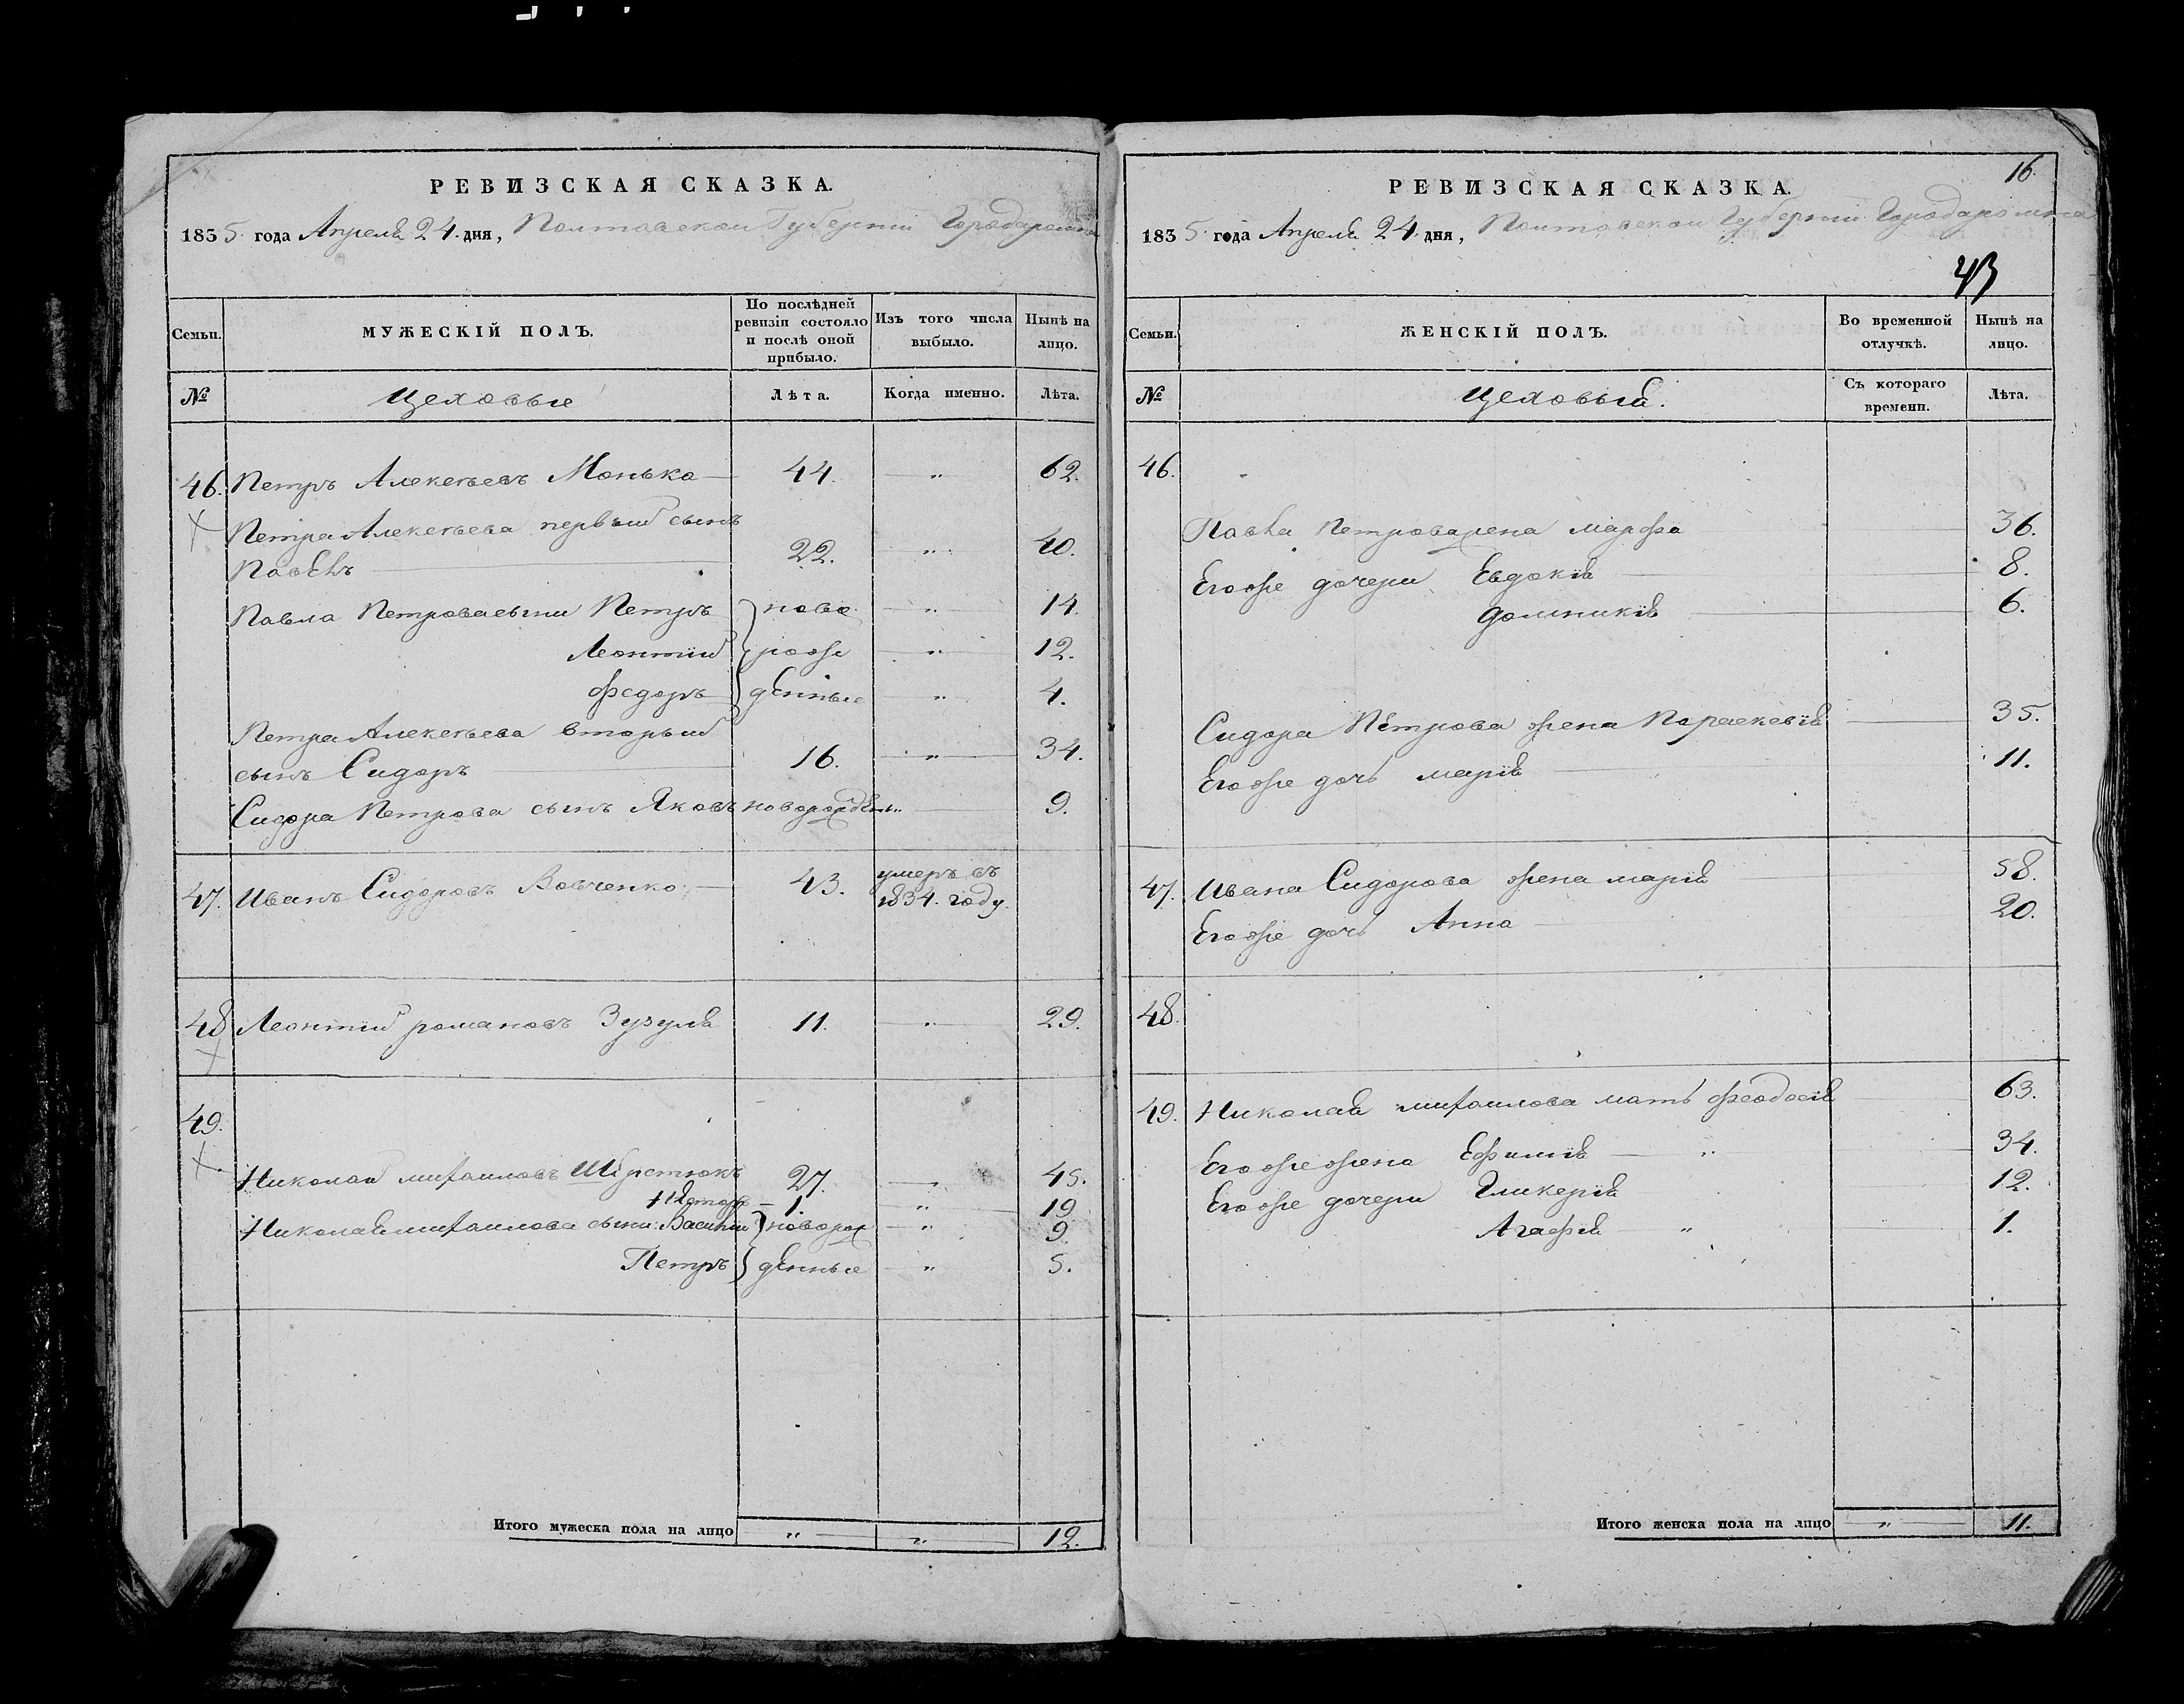 РЕВИЗСКАЯ СКАЗКА.
1835. года Апреля 24. дня, Полтавской Губернии Города Ромна
Семьи.
МУЖЕСКІЙ ПОЛЪ.
По послѣдней ревизіи состояло и послѣ оной прибыло.
Изъ того числа выбыло.
Нынѣ на лицо.
№
Цеховые
Лѣта.
Когда именно.
Лѣта.
46. Петръ Алексеевъ Монько 44. " 62.
Петра Алексеева первый сынъ
Павелъ 22. " 40.
Павла Петрова сыни Петръ ново " 14.
Леонтий рож " 12.
Федоръ денные " 4.
Петра Алексеева вторый
сынъ Сидоръ 16. " 34.
Сидора Петрова сынъ Яковъ новорожденъ " 9.
47. Иванъ Сидоровъ Вовченко 43. умеръ въ
1834. году.
48 Леонтий романовъ Зузуля 11. " 29.
49.
Николай михаиловъ 27. 45.
Несторъ 1. " 19
Николая михаилова сыни: Василий новорож " 9.
Петръ денные " 5.
Итого мужеска пола на лицо " " 12.
16.
РЕВИЗСКАЯ СКАЗКА.
1835. года Апреля 24. дня, Полтавской Губернии Города Ромна
43
Семьи.
ЖЕНСКІЙ ПОЛЪ.
Во временной отлучкѣ.
Нынѣ на лицо.
№
Цеховыя.
Съ котораго времени.
Лѣта.
46.
Павла Петрова жена марфа 36.
Егоже дочери Евдокія 8.
домникія 6.
Сидора Петрова жена Параскевія 35.
Егоже дочь марія 11.
47. Ивана Сидорова жена марія 58.
Егоже дочь Анна 20.
48.
49. Николая михаилова мать феодосія 63.
Егоже жена Ефимія " 34.
Егоже дочери Гликерія 12.
Агафія " 1.
Итого женска пола на лицо " 11.